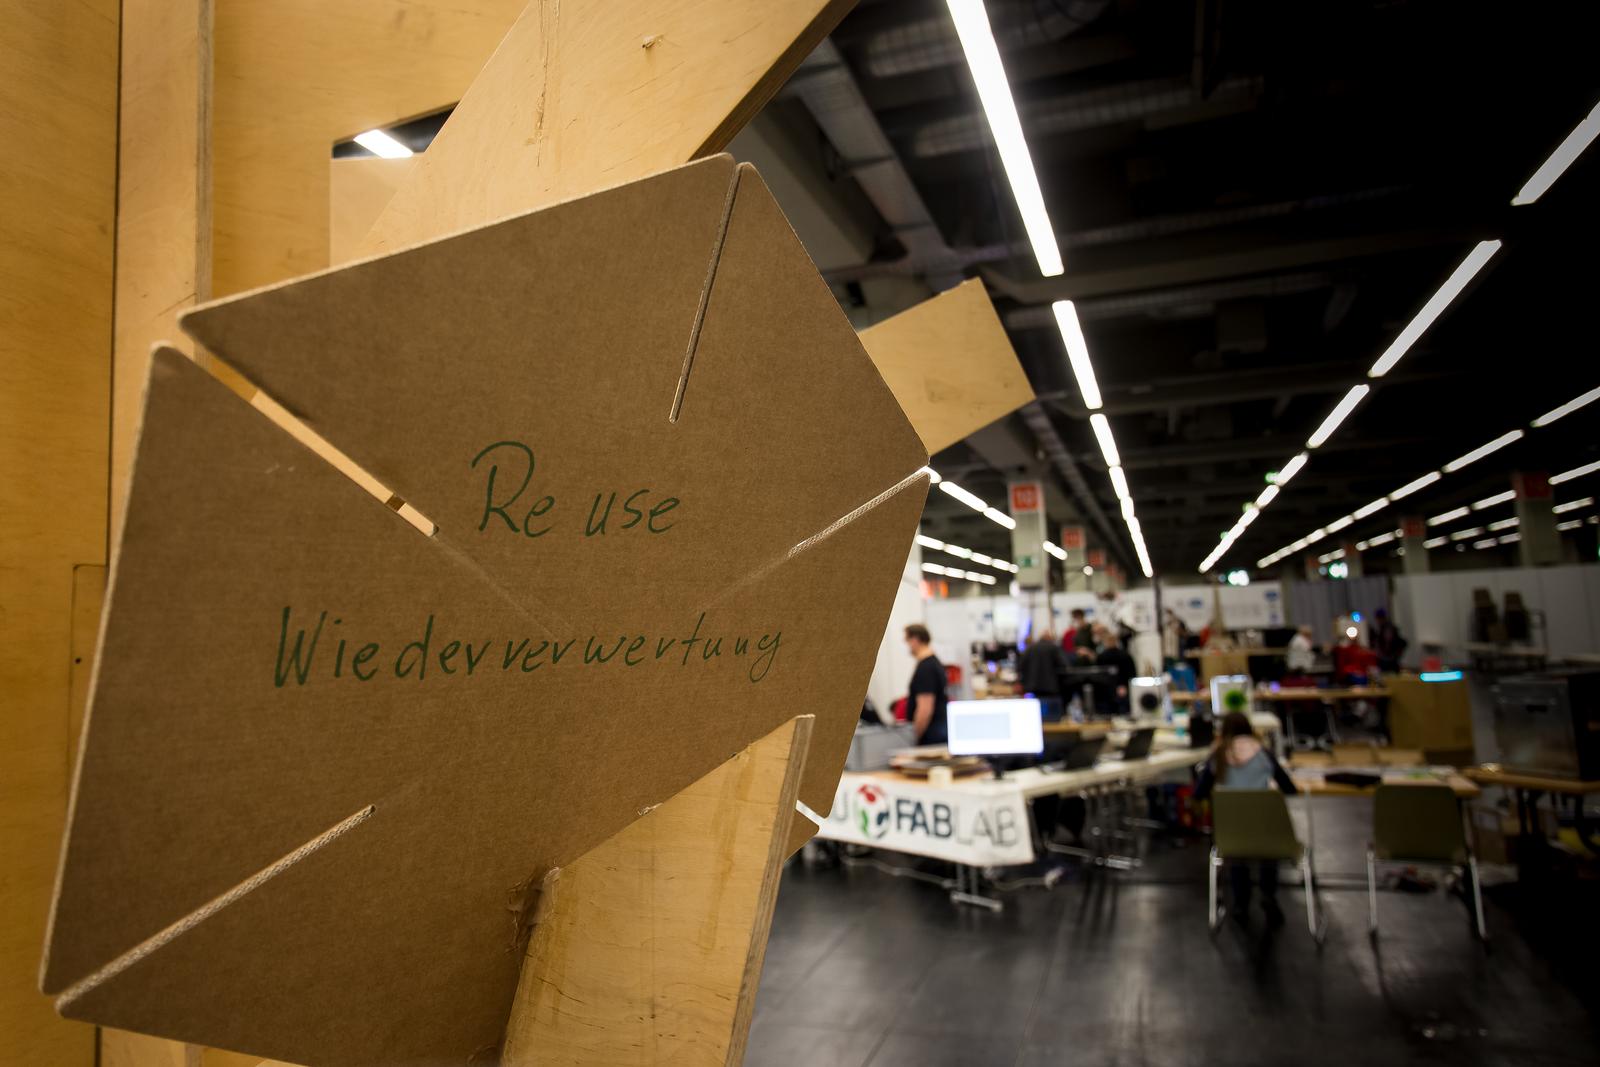 Re use
Wiederverwertung
U FABLAB
10